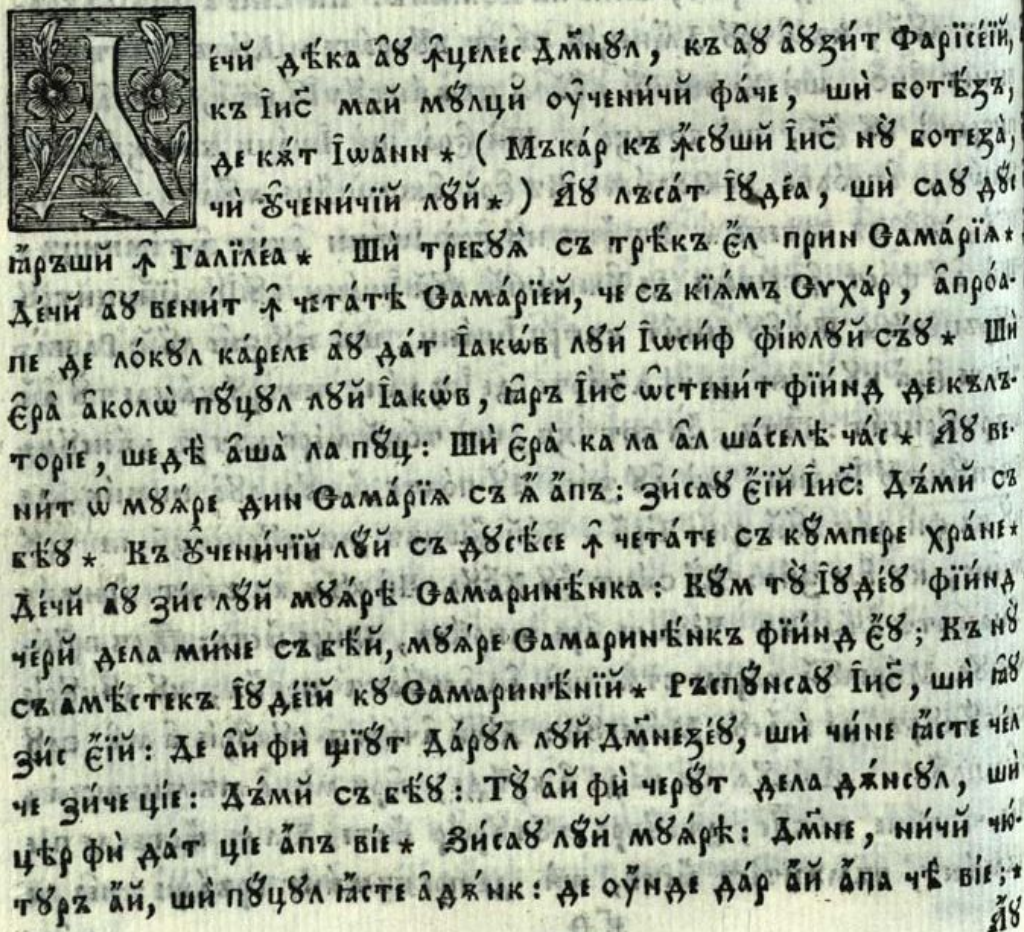 Де́чй дѣ́ка а҆ꙋ ꙟ҆целе́с Дм҃нꙋл, къ а҆ꙋ а҆ꙋзи́т Фарїсе́їй,
къ І҆ис҃ май мꙋ́лцй оу҆чени́чй фа́че, шѝ ботѣ́зъ,
де кѫ́т І҆ѡа́нн * ( Мъка́р къ ꙟ҆́сꙋшй І҆ис҃ нꙋ̀ ботеза̀,
чѝ ᲂу҆чени́чїй лꙋ́й * ) А҆́ꙋ лъса́т І҆ꙋде́а, шѝ саꙋ дꙋ́с
ꙗ҆́ръшй ꙟ҆ Галїле́а * Шѝ требꙋѧ̀ съ трѣ́къ є҆́л прин Сама́рїѧ *
Де́чй а҆ꙋ вени́т ꙟ҆ четáтѣ Сама́рїей, че съ кїѧ́мъ Сѵха́р, а҆про́а-
пе де ло́кꙋл ка́реле а҆ꙋ да́т І҆акѡ́в лꙋй І҆ѡси́ф фі́юлꙋй съ́ꙋ * Шѝ
є҆ра̀ а҆колѡ̀ пꙋ́цꙋл лꙋй І҆акѡ́в, ꙗ҆́ръ І҆ис҃ ѡ҆стени́т фїи́нд де кълъ-
торі́е, шедѣ̀ а҆ша̀ ла пꙋ́ц: Шѝ є҆ра̀ ка ла а҆л ша́селѣ ча́с * А҆́ꙋ ве-
ни́т ѡ҆ мꙋѧ́ре дин Сама́рїѧ съ ѧ҆́ а҆́пъ: зи́саꙋ є҆́їй І҆ис҃: Дъ́мй съ
бѣ́ꙋ * Къ ᲂу҆чени́чїй лꙋ́й съ дꙋсѣ́се ꙟ҆ чета́те съ кꙋ́мпере хра́не *
Де́чй а҆ꙋ зи́с лꙋ́й мꙋѧ́рѣ Самаринѣ́нка: Кꙋ́м тꙋ̀ І҆ꙋде́ꙋ фїи́нд
че́рй дела ми́не съ бѣ́й, мꙋѧ́ре Самаринѣ́нкъ фїи́нд є҆́ꙋ; Къ нꙋ̀
съ а҆мѣ́стекъ І҆ꙋде́їй кꙋ Самаринѣ́нїй * Ръспꙋ́нсаꙋ І҆ис҃, шѝ ꙗ҆́ꙋ
зи́с є҆́їй: Де а҆́й фѝ щїꙋ́т Да́рꙋл лꙋй Дм҃незе́ꙋ, шѝ чи́не ꙗ҆́сте че́л
че зи́че ці́е: Дъ́мй съ бѣ́ꙋ: Тꙋ̀ а҆́й фѝ черꙋ́т дела дѫ́нсꙋл, шѝ
цѣ́р фѝ да́т ці́е а҆́пъ ві́е * Зи́саꙋ лꙋ́й мꙋѧ́рѣ: Дм҃не, ни́чй чю́-
тꙋръ а҆́й, шѝ пꙋ́цꙋл ꙗ҆́сте а҆дѫ́нк: де оу҆́нде да́р а҆́й а҆́па чѣ̀ ві́е; *
А҆́ꙋ